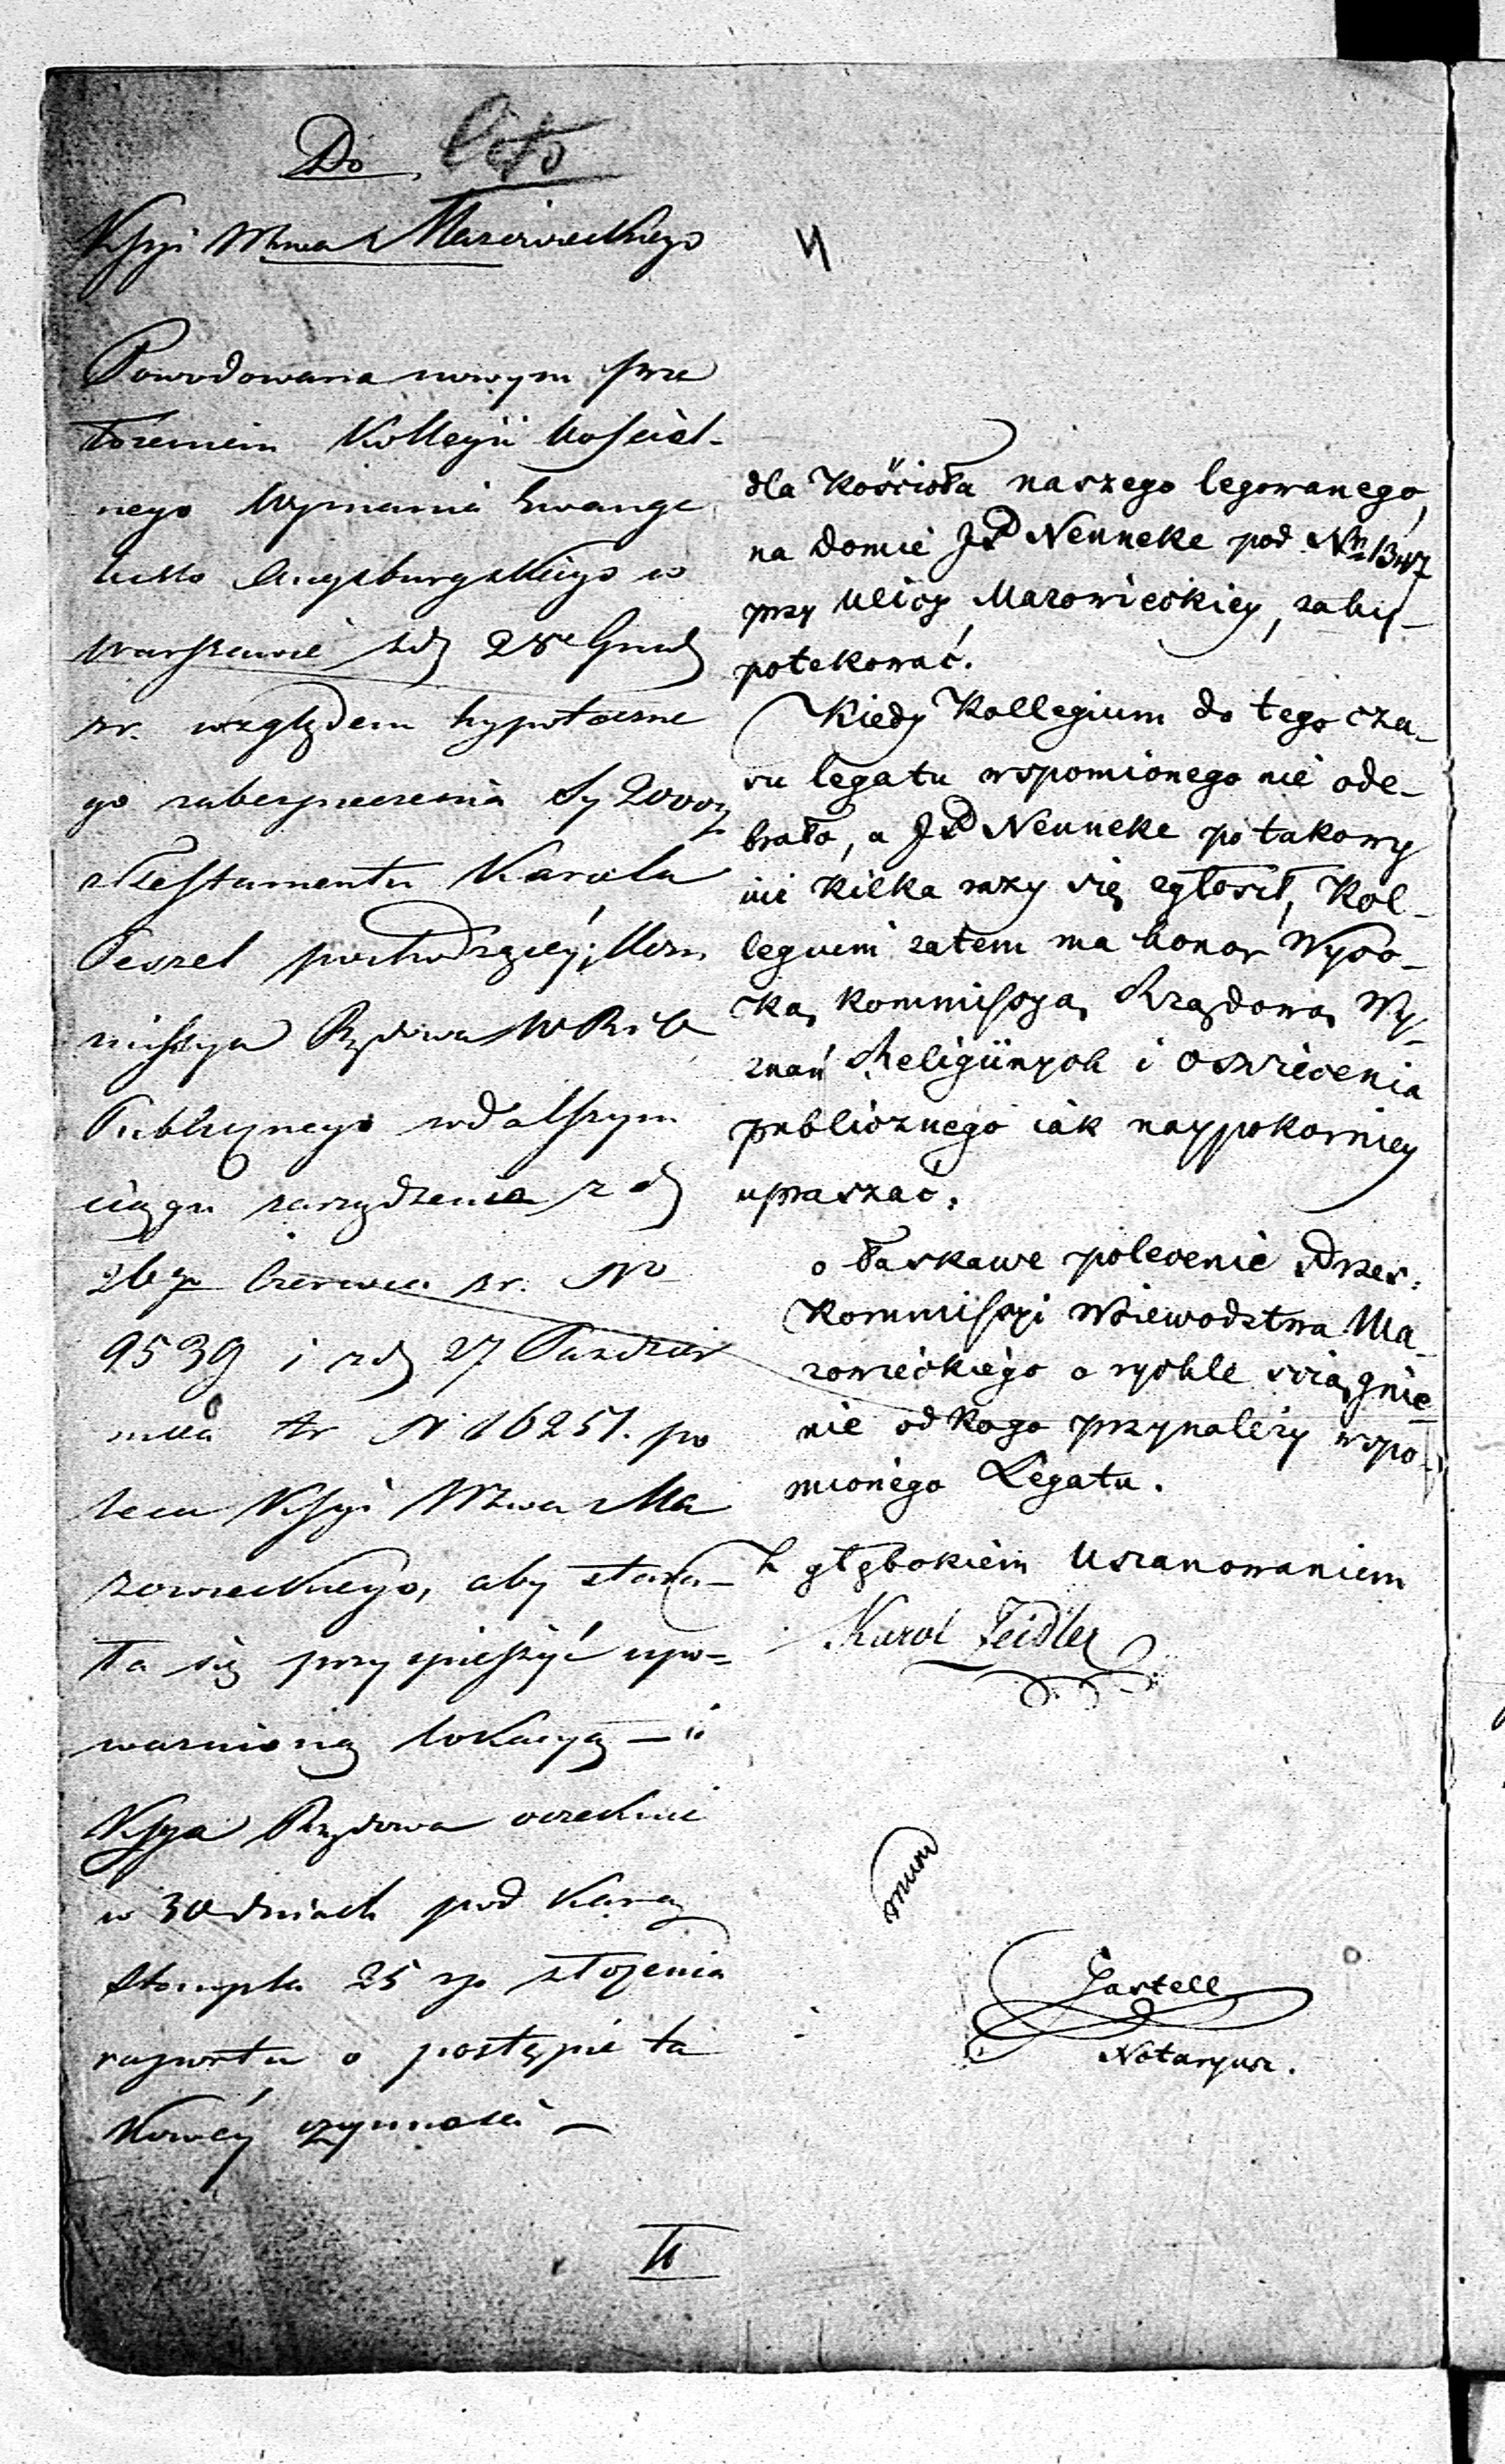 Do Cito
Kssyi Wtwa Mazowieckiego
Powodowana nowym prze
łożeniem Kollegii Kościel-
nego Wyznania Ewange
licko Augsburgskiego w
Warszawie z dj 28 Grud
zr. względem hypoteczne
go zabezpieczenia Sy 2000
z Testamentu Karola
Peszel pochodzącéj; Kom
missya Rządowa W R i O
Publicznego w dalszym
ciągu zarządzenia z d
26 go Czerwca br. No
9539 i z d 27 Paździer
nika br N 16251. po
leca Kssyi Wtwa Ma
zowieckiego, aby stara-
ła się przyspieszyć upo-
ważnioną lokacyą — i
Kssya Rządowa oczekuie
w 30 dniach pod karą
Stempla 25 złożenia
raportu o postępie ta
kowéy czynności —
dla Kościoła naszego legowanego,
na domie JP Nenneke pod Nrm 1347
przy ulicy Mazowieckiey, zahy-
potekować.
Kiedy Kollegium do tego cza-
su legatu wspomionego nie ode-
brało, a JP Nenneke po takowy
iuż kilka razy się zgłosił, Kol-
legium zatem ma honor Wyso-
ką Kommissyą Rządową Wy-
znań Religiinych i Oswiecenia
publicznego iak naypokorniey
upraszać:
o łaskawe polecenie Przes:
Kommissyi Woiewodztwa Ma-
zowieckiego o rychłe sciągnie-
nie od kogo przynależy wspo-
mionego Legatu.
Z głębokiem uszanowaniem
Karol Zeidler
Jastell
Notaryusz.